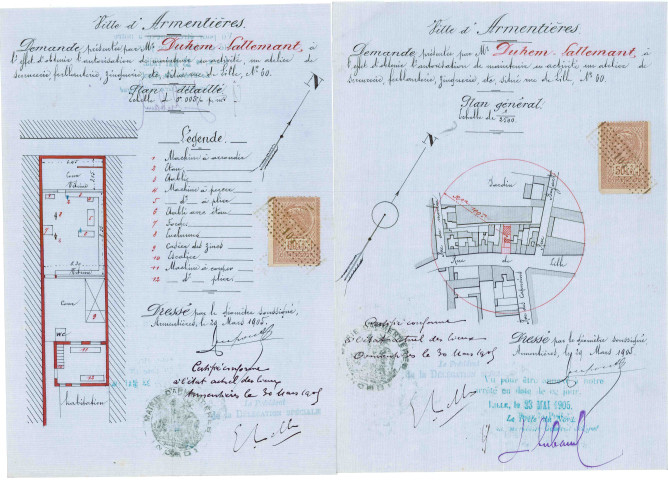 Ville d'Armentières.
Demande présentée par Mr Duhem-Lallemant, à
l'effet d'obtenir l'autorisation de maintenir en activité, un atelier de
serrurerie, ferblanterie, zinguerie, etc, situé rue de Lille, No 60.
Plan détaillé
Echelle de 0.005 p. m.
Légende.
1 Machine à arrondir
2 Etau
3 Etabli
4 Machine à percer
5 d° à plier
6 Etabli avec étau
7 Foyer
8 Enclume
9 Casier des zincs
10 Escalier
11 Machine à couper
12 d° à plier
Cour
Vitrine
Vitrine
Cour
WC
habitation
Dressé par le géomètre soussigné,
Armentières, le 29 Mars 1905.
Certifié conforme
à l'état actuel des lieux
Armentières le 30 Mars 1905
Ville d'Armentières.
Demande présentée par Mr Duhem-Lallemant, à
l'effet d'obtenir l'autorisation de maintenir en activité, un atelier de
serrurerie, ferblanterie, zinguerie, etc, situé rue de Lille, No 60.
Plan général.
Echelle de 1/2500
N
Jardin
Rue de Lille
Certifié conforme
à l'état actuel des lieux
Armentières le 30 Mars 1905
Dressé par le géomètre soussigné,
Armentières, le 29 Mars 1905.
Vu pour être annexé à notre
arrêté en date de ce jour.
LILLE, le 23 MAI 1905.
Le Préfet du Nord